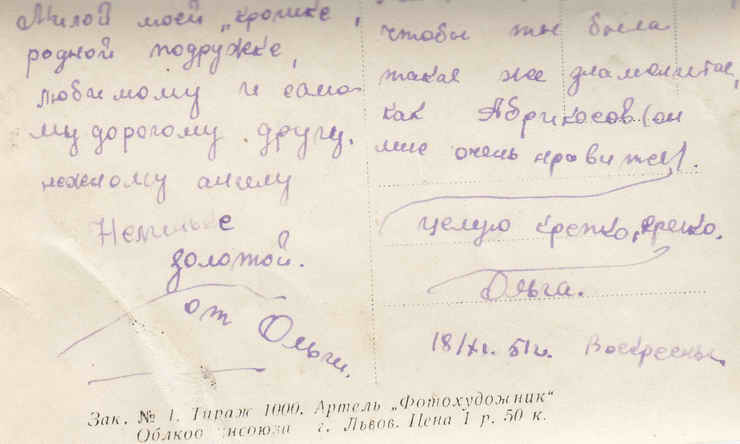 Милой моей „крошке,
родной подружке,
любимому и само-
му дорогому другу,
нежному ангелу
золотой.
от Ольги.
чтобы ты была
такая же знаменитая,
как Абрикосов (он
мне очень нравится).
целую крепко, крепко.
Ольга.
18/XI. 51г. Воскресенье.
Зак. № 1. Тираж 1000. Артель „Фотохудожник“
г. Львов. Цена 1 р. 50 к.